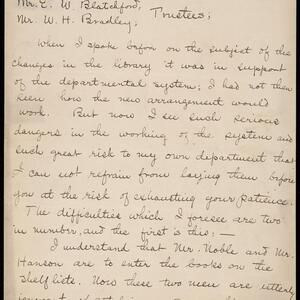 Mr. E. W. Blatchford,
Mr. W. H. Bradley, Trustees;
When I spoke before on the subject of the
changes in the library it was in support
of the departmental system; I had not then
seen how the new arrangement would
work. But now I see such serious
dangers in the working of the system and
such great risk to my own department that
I can not refrain from laying them before
you at the risk of exhausting your patience.
The difficulties which I foresee are two
in number, and the first is this:—
I understand that Mr. Noble and Mr.
Hanson are to enter the books on the
shelf lists. Now these two men are utterly